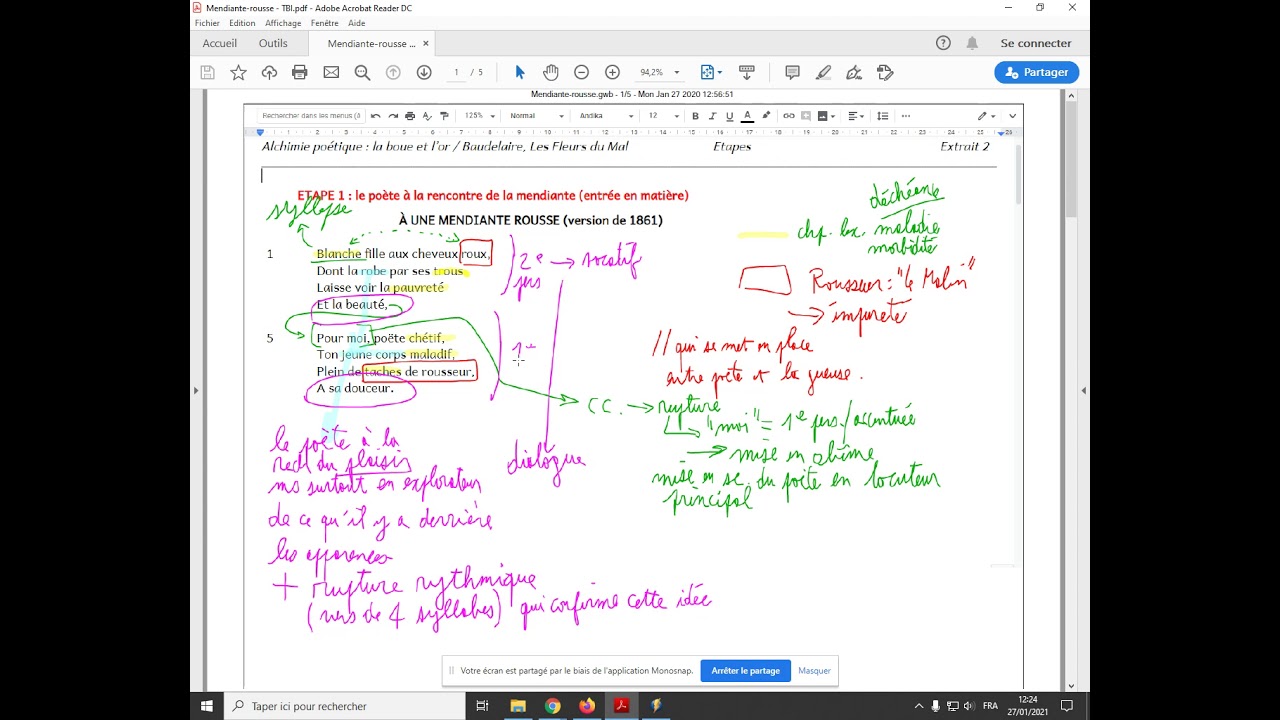 Mendiante-rousse - TBI.pdf - Adobe Acrobat Reader DC
Fichier Edition Affichage Fenêtre Aide
Accueil Outils Mendiante-rousse ... × Se connecter
1 / 5 94,2% Partager
Mendiante-rousse.gwb - 1/5 - Mon Jan 27 2020 12:56:51
Rechercher dans les menus (A 125% Normal Andika 12 B I U A
Alchimie poétique : la boue et l'or / Baudelaire, Les Fleurs du Mal Etapes Extrait 2
ETAPE 1 : le poète à la rencontre de la mendiante (entrée en matière)
syllepse
À UNE MENDIANTE ROUSSE (version de 1861)
1 Blanche fille aux cheveux roux,
Dont la robe par ses trous
Laisse voir la pauvreté
Et la beauté,
5 Pour moi, poëte chétif,
Ton jeune corps maladif,
Plein de taches de rousseur,
A sa douceur.
2e → vocatif
pers
1re
dialogue
déchéance
chp. lex. maladie
morbidité
Rousseur : "le Malin"
→ impureté
// qui se met en place
entre poète et la gueuse.
CC. → rupture
"moi" = 1e pers. / accentuée
→ mise en abîme
mise en sc. du poète en locuteur
principal
le poète à la
rech du plaisir
ms surtout en explorateur
de ce qu'il y a derrière
les apparences
+ rupture rythmique
(vers de 4 syllabes) qui confirme cette idée
Votre écran est partagé par le biais de l'application Monosnap. Arrêter le partage Masquer
Taper ici pour rechercher FRA 12:24
27/01/2021